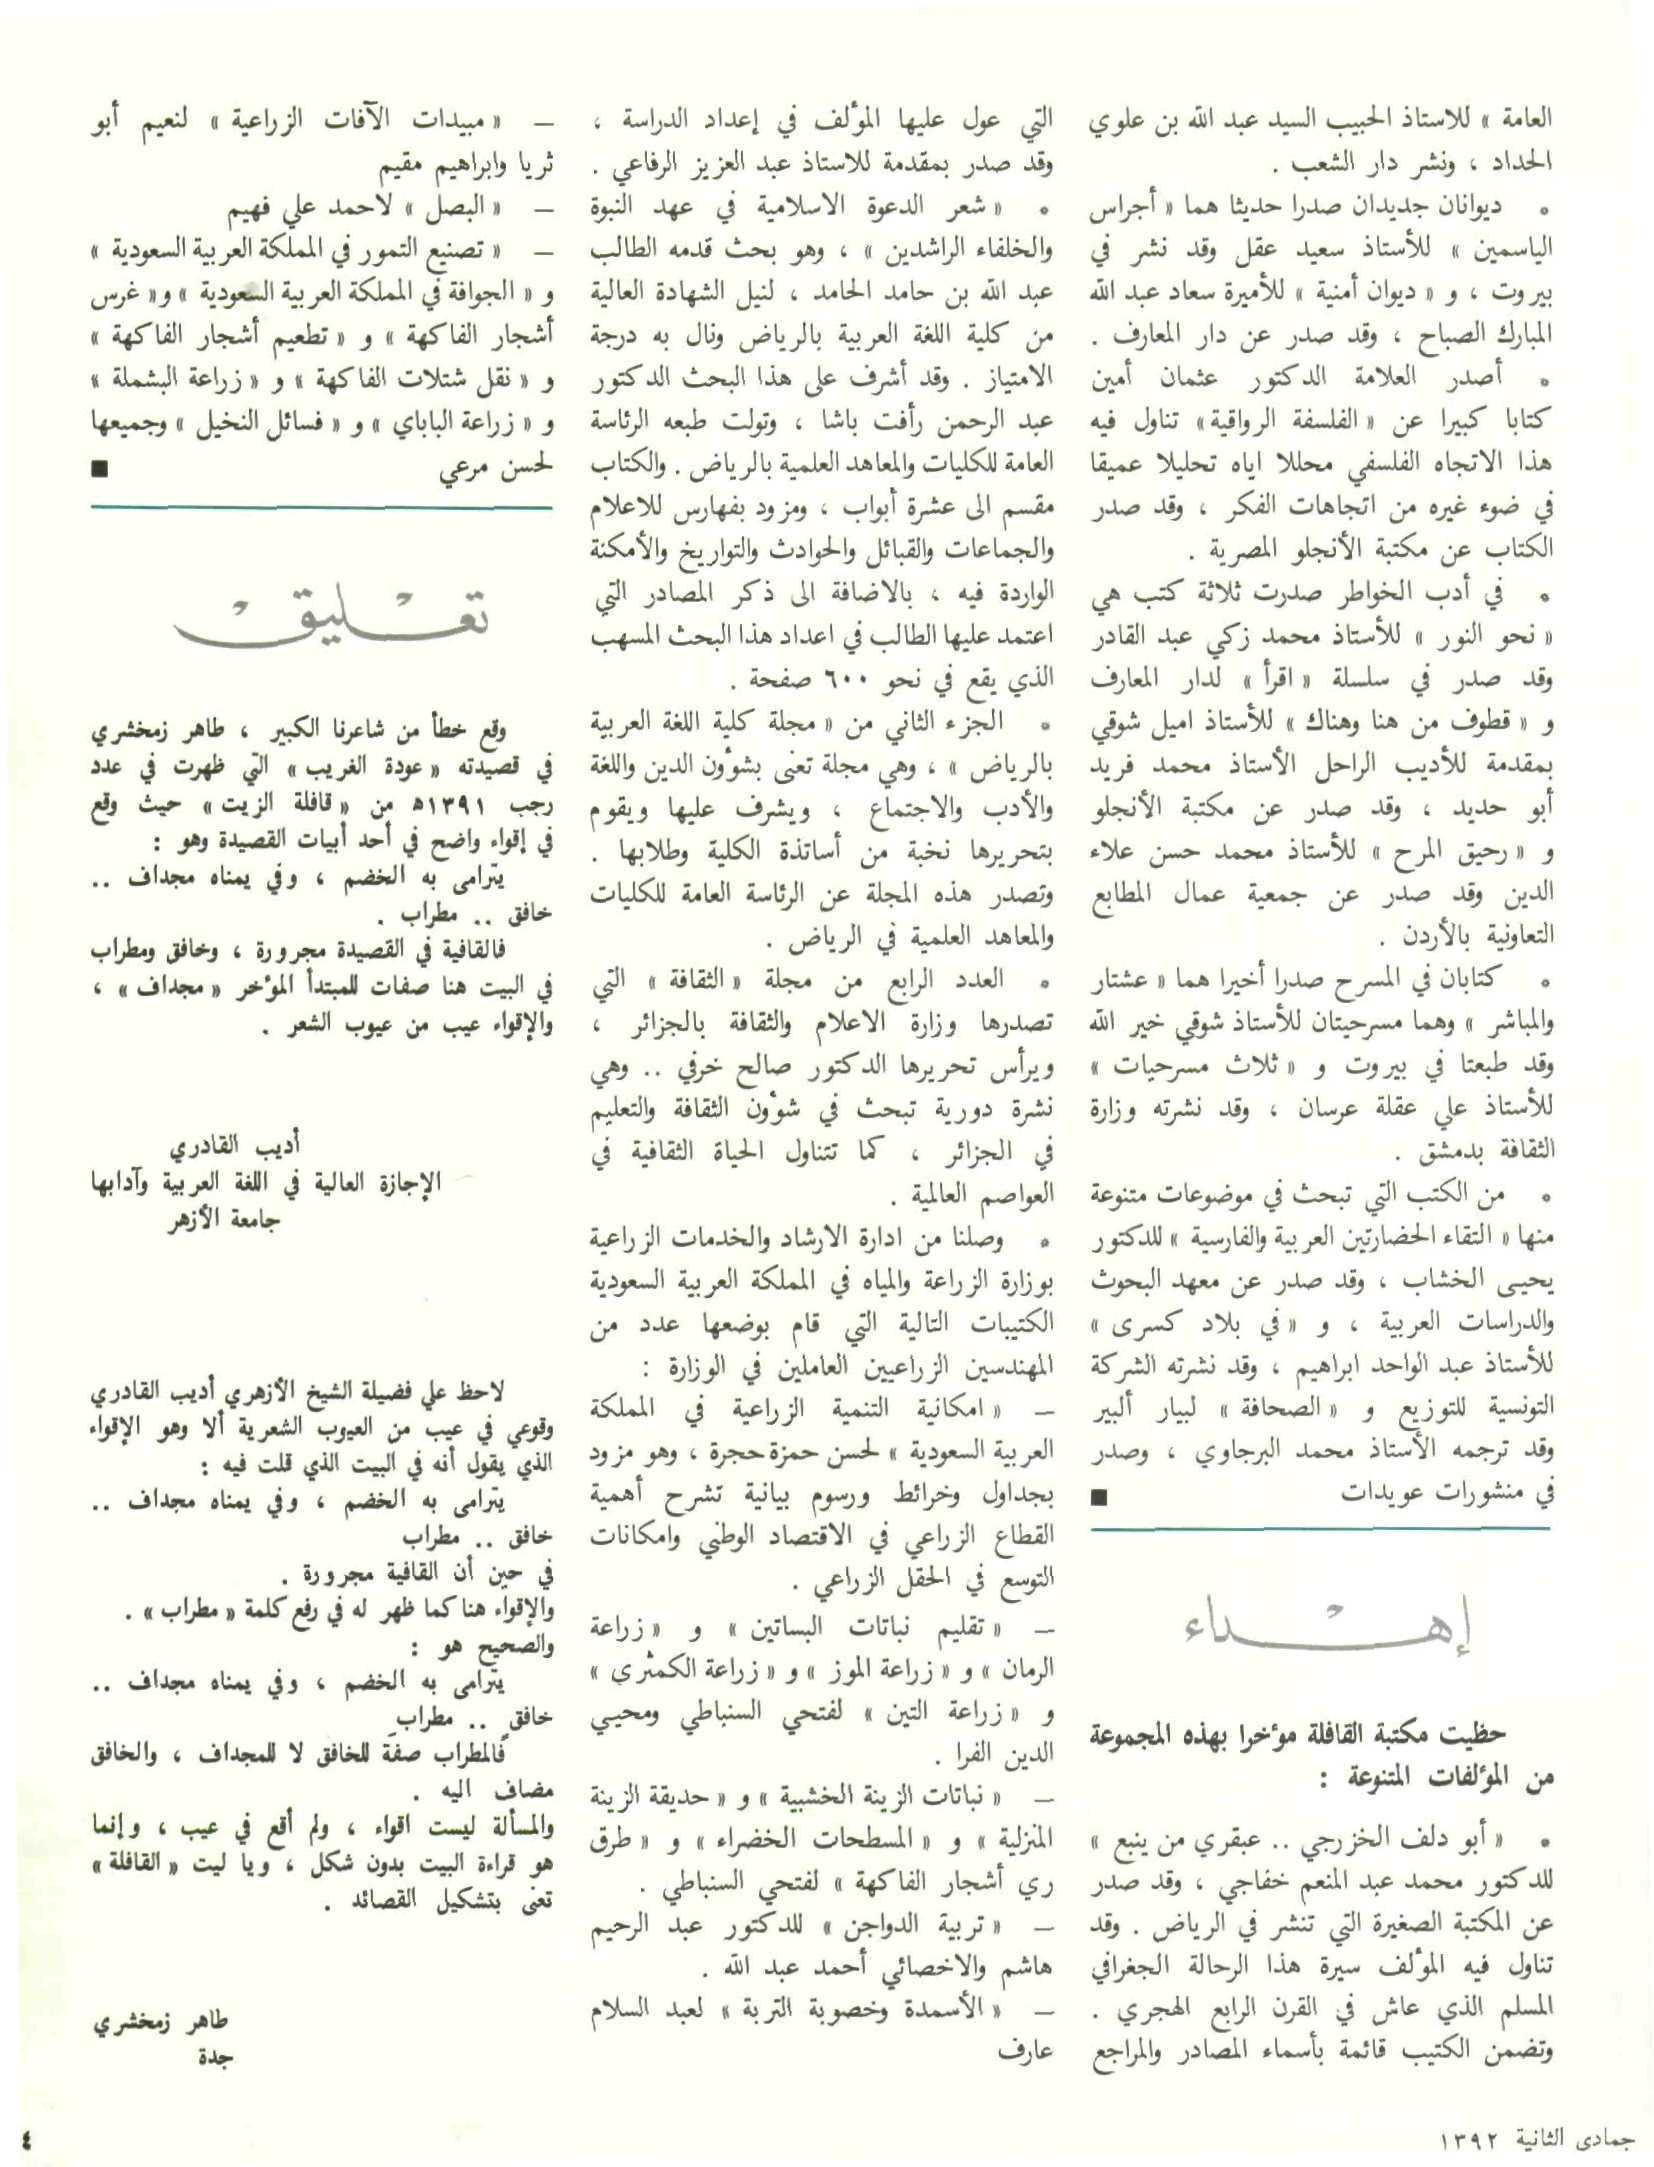 العامة » للاستاذ الحبيب السيد عبد الله بن علوي
الحداد ، ونشر دار الشعب .
• ديوانان جديدان صدرا حديثا هما « أجراس
الياسمين » للأستاذ سعيد عقل وقد نشر في
بيروت ، و « ديوان أمنية » للأميرة سعاد عبد الله
المبارك الصباح ، وقد صدر عن دار المعارف .
• أصدر العلامة الدكتور عثمان أمين
كتابا كبيرا عن « الفلسفة الرواقية» تناول فيه
هذا الاتجاه الفلسفي محللا اياه تحليلا عميقا
في ضوء غيره من اتجاهات الفكر ، وقد صدر
الكتاب عن مكتبة الأنجلو المصرية .
• في أدب الخواطر صدرت ثلاثة كتب هي
« نحو النور » للأستاذ محمد زكي عبد القادر
وقد صدر في سلسلة « اقرأ » لدار المعارف
و « قطوف من هنا وهناك » للأستاذ اميل شوقي
بمقدمة للأديب الراحل الأستاذ محمد فريد
أبو حديد ، وقد صدر عن مكتبة الأنجلو
و « رحيق المرح » للأستاذ محمد حسن علاء
الدين وقد صدر عن جمعية عمال المطابع
التعاونية بالأردن .
• كتابان في المسرح صدرا أخيرا هما « عشتار
والمباشر » وهما مسرحيتان للأستاذ شوقي خير الله
وقد طبعتا في بيروت و « ثلاث مسرحيات »
للأستاذ علي عقلة عرسان ، وقد نشرته وزارة
الثقافة بدمشق .
• من الكتب التي تبحث في موضوعات متنوعة
منها « التقاء الحضارتين العربية والفارسية » للدكتور
يحيى الخشاب ، وقد صدر عن معهد البحوث
والدراسات العربية ، و « في بلاد كسرى »
للأستاذ عبد الواحد ابراهيم ، وقد نشرته الشركة
التونسية للتوزيع و « الصحافة » لبيار ألبير
وقد ترجمه الأستاذ محمد البرجاوي ، وصدر
في منشورات عويدات ■
إهداء
حظيت مكتبة القافلة مؤخرا بهذه المجموعة
من المؤلفات المتنوعة :
• « أبو دلف الخزرجي .. عبقري من ينبع »
للدكتور محمد عبد المنعم خفاجي ، وقد صدر
عن المكتبة الصغيرة التي تنشر في الرياض . وقد
تناول فيه المؤلف سيرة هذا الرحالة الجغرافي
المسلم الذي عاش في القرن الرابع الهجري .
وتضمن الكتيب قائمة بأسماء المصادر والمراجع
التي عول عليها المؤلف في إعداد الدراسة ،
وقد صدر بمقدمة للاستاذ عبد العزيز الرفاعي .
• « شعر الدعوة الاسلامية في عهد النبوة
والخلفاء الراشدين » ، وهو بحث قدمه الطالب
عبد الله بن حامد الحامد ، لنيل الشهادة العالية
من كلية اللغة العربية بالرياض ونال به درجة
الامتياز . وقد أشرف على هذا البحث الدكتور
عبد الرحمن رأفت باشا ، وتولت طبعه الرئاسة
العامة للكليات والمعاهد العلمية بالرياض . والكتاب
مقسم الى عشرة أبواب ، ومزود بفهارس للاعلام
والجماعات والقبائل والحوادث والتواريخ والأمكنة
الواردة فيه ، بالاضافة الى ذكر المصادر التي
اعتمد عليها الطالب في اعداد هذا البحث المسهب
الذي يقع في نحو ٦٠٠ صفحة .
• الجزء الثاني من « مجلة كلية اللغة العربية
بالرياض » ، وهي مجلة تعنى بشؤون الدين واللغة
والأدب والاجتماع ، ويشرف عليها ويقوم
بتحريرها نخبة من أساتذة الكلية وطلابها .
وتصدر هذه المجلة عن الرئاسة العامة للكليات
والمعاهد العلمية في الرياض .
• العدد الرابع من مجلة « الثقافة » التي
تصدرها وزارة الاعلام والثقافة بالجزائر ،
ويرأس تحريرها الدكتور صالح خرفي .. وهي
نشرة دورية تبحث في شؤون الثقافة والتعليم
في الجزائر ، كما تتناول الحياة الثقافية في
العواصم العالمية .
• وصلنا من ادارة الارشاد والخدمات الزراعية
بوزارة الزراعة والمياه في المملكة العربية السعودية
الكتيبات التالية التي قام بوضعها عدد من
المهندسين الزراعيين العاملين في الوزارة :
— « امكانية التنمية الزراعية في المملكة
العربية السعودية » لحسن حمزة حجرة ، وهو مزود
بجداول وخرائط ورسوم بيانية تشرح أهمية
القطاع الزراعي في الاقتصاد الوطني وامكانات
التوسع في الحقل الزراعي .
— « تقليم نباتات البساتين » و « زراعة
الرمان » و « زراعة الموز » و « زراعة الكمثرى »
و « زراعة التين » لفتحي السنباطي ومحيي
الدين الفرا .
— « نباتات الزينة الخشبية » و « حديقة الزينة
المنزلية » و « المسطحات الخضراء » و « طرق
ري أشجار الفاكهة » لفتحي السنباطي .
— « تربية الدواجن » للدكتور عبد الرحيم
هاشم والاخصائي أحمد عبد الله .
— « الأسمدة وخصوبة التربة » لعبد السلام
عارف
— « مبيدات الآفات الزراعية » لنعيم أبو
ثريا وابراهيم مقيم
— « البصل » لاحمد علي فهيم
— « تصنيع التمور في المملكة العربية السعودية »
و « الجوافة في المملكة العربية السعودية » و« غرس
أشجار الفاكهة » و « تطعيم أشجار الفاكهة »
و « نقل شتلات الفاكهة » و « زراعة البشملة »
و « زراعة الباباي » و « فسائل النخيل » وجميعها
لحسن مرعي ■
تعليق
وقع خطأ من شاعرنا الكبير ، طاهر زمخشري
في قصيدته «عودة الغريب» التي ظهرت في عدد
رجب ١٣٩١ه من «قافلة الزيت» حيث وقع
في إقواء واضح في أحد أبيات القصيدة وهو :
يترامى به الخضم ، وفي يمناه مجداف ..
خافق .. مطراب .
فالقافية في القصيدة مجرورة ، وخافق ومطراب
في البيت هنا صفات للمبتدأ المؤخر «مجداف» ،
والإقواء عيب من عيوب الشعر .
أديب القادري
الإجازة العالية في اللغة العربية وآدابها
جامعة الأزهر
لاحظ علي فضيلة الشيخ الأزهري أديب القادري
وقوعي في عيب من العيوب الشعرية ألا وهو الإقواء
الذي يقول أنه في البيت الذي قلت فيه :
يترامى به الخضم ، وفي يمناه مجداف ..
خافق .. مطراب
في حين أن القافية مجرورة .
والإقواء هنا كما ظهر له في رفع كلمة «مطراب» .
والصحيح هو :
يترامى به الخضم ، وفي يمناه مجداف ..
خافقٍ .. مطرابِ
فالمطراب صفة للخافق لا للمجداف ، والخافق
مضاف اليه .
والمسألة ليست اقواء ، ولم أقع في عيب ، وإنما
هو قراءة البيت بدون شكل ، ويا ليت «القافلة»
تعنى بتشكيل القصائد .
طاهر زمخشري
جدة
جمادى الثانية ١٣٩٢
٤